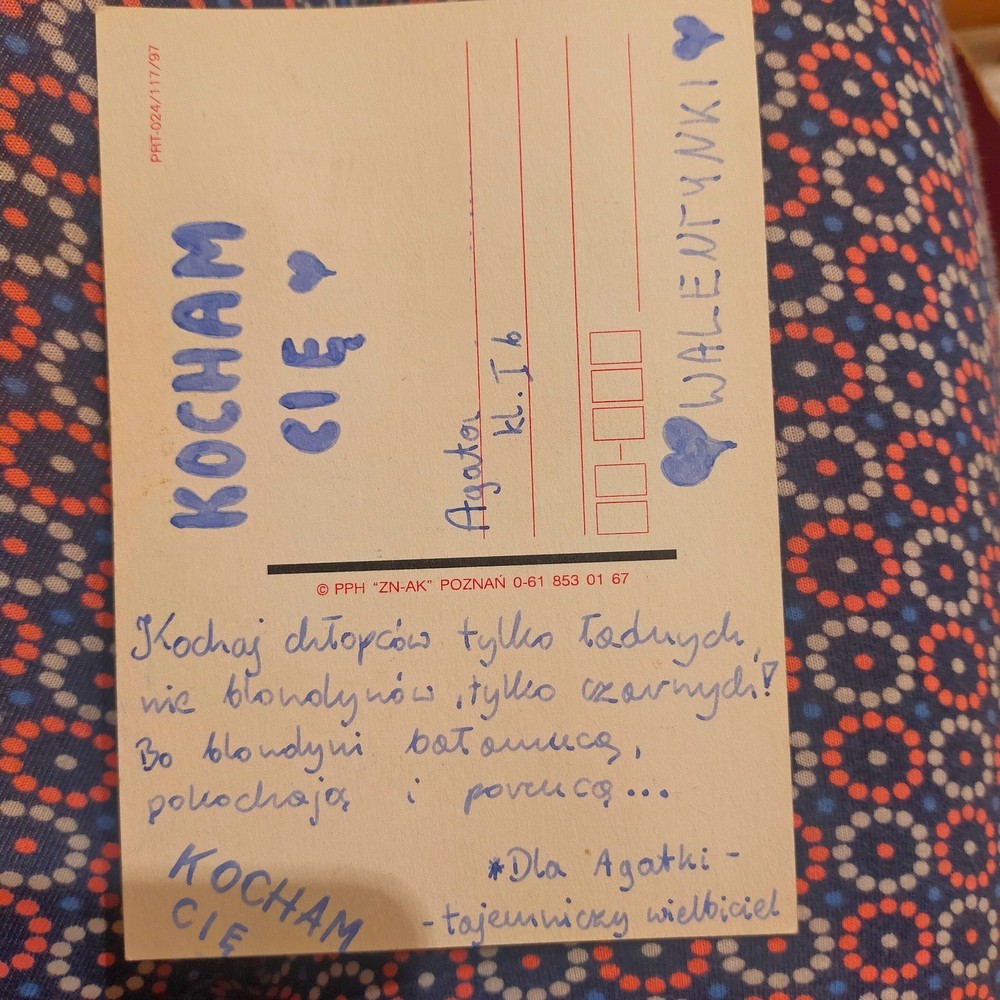 PRT-024/117/97
KOCHAM
CIĘ
Agata
kl. I b
WALENTYNKI
© PPH "ZN-AK" POZNAŃ 0-61 853 01 67
Kochaj chłopców tylko ładnych,
nie blondynów, tylko czarnych!
Bo blondyni bałamucą,
pokochają i porzucą...
KOCHAM
CIĘ
*Dla Agatki -
- tajemniczy wielbiciel